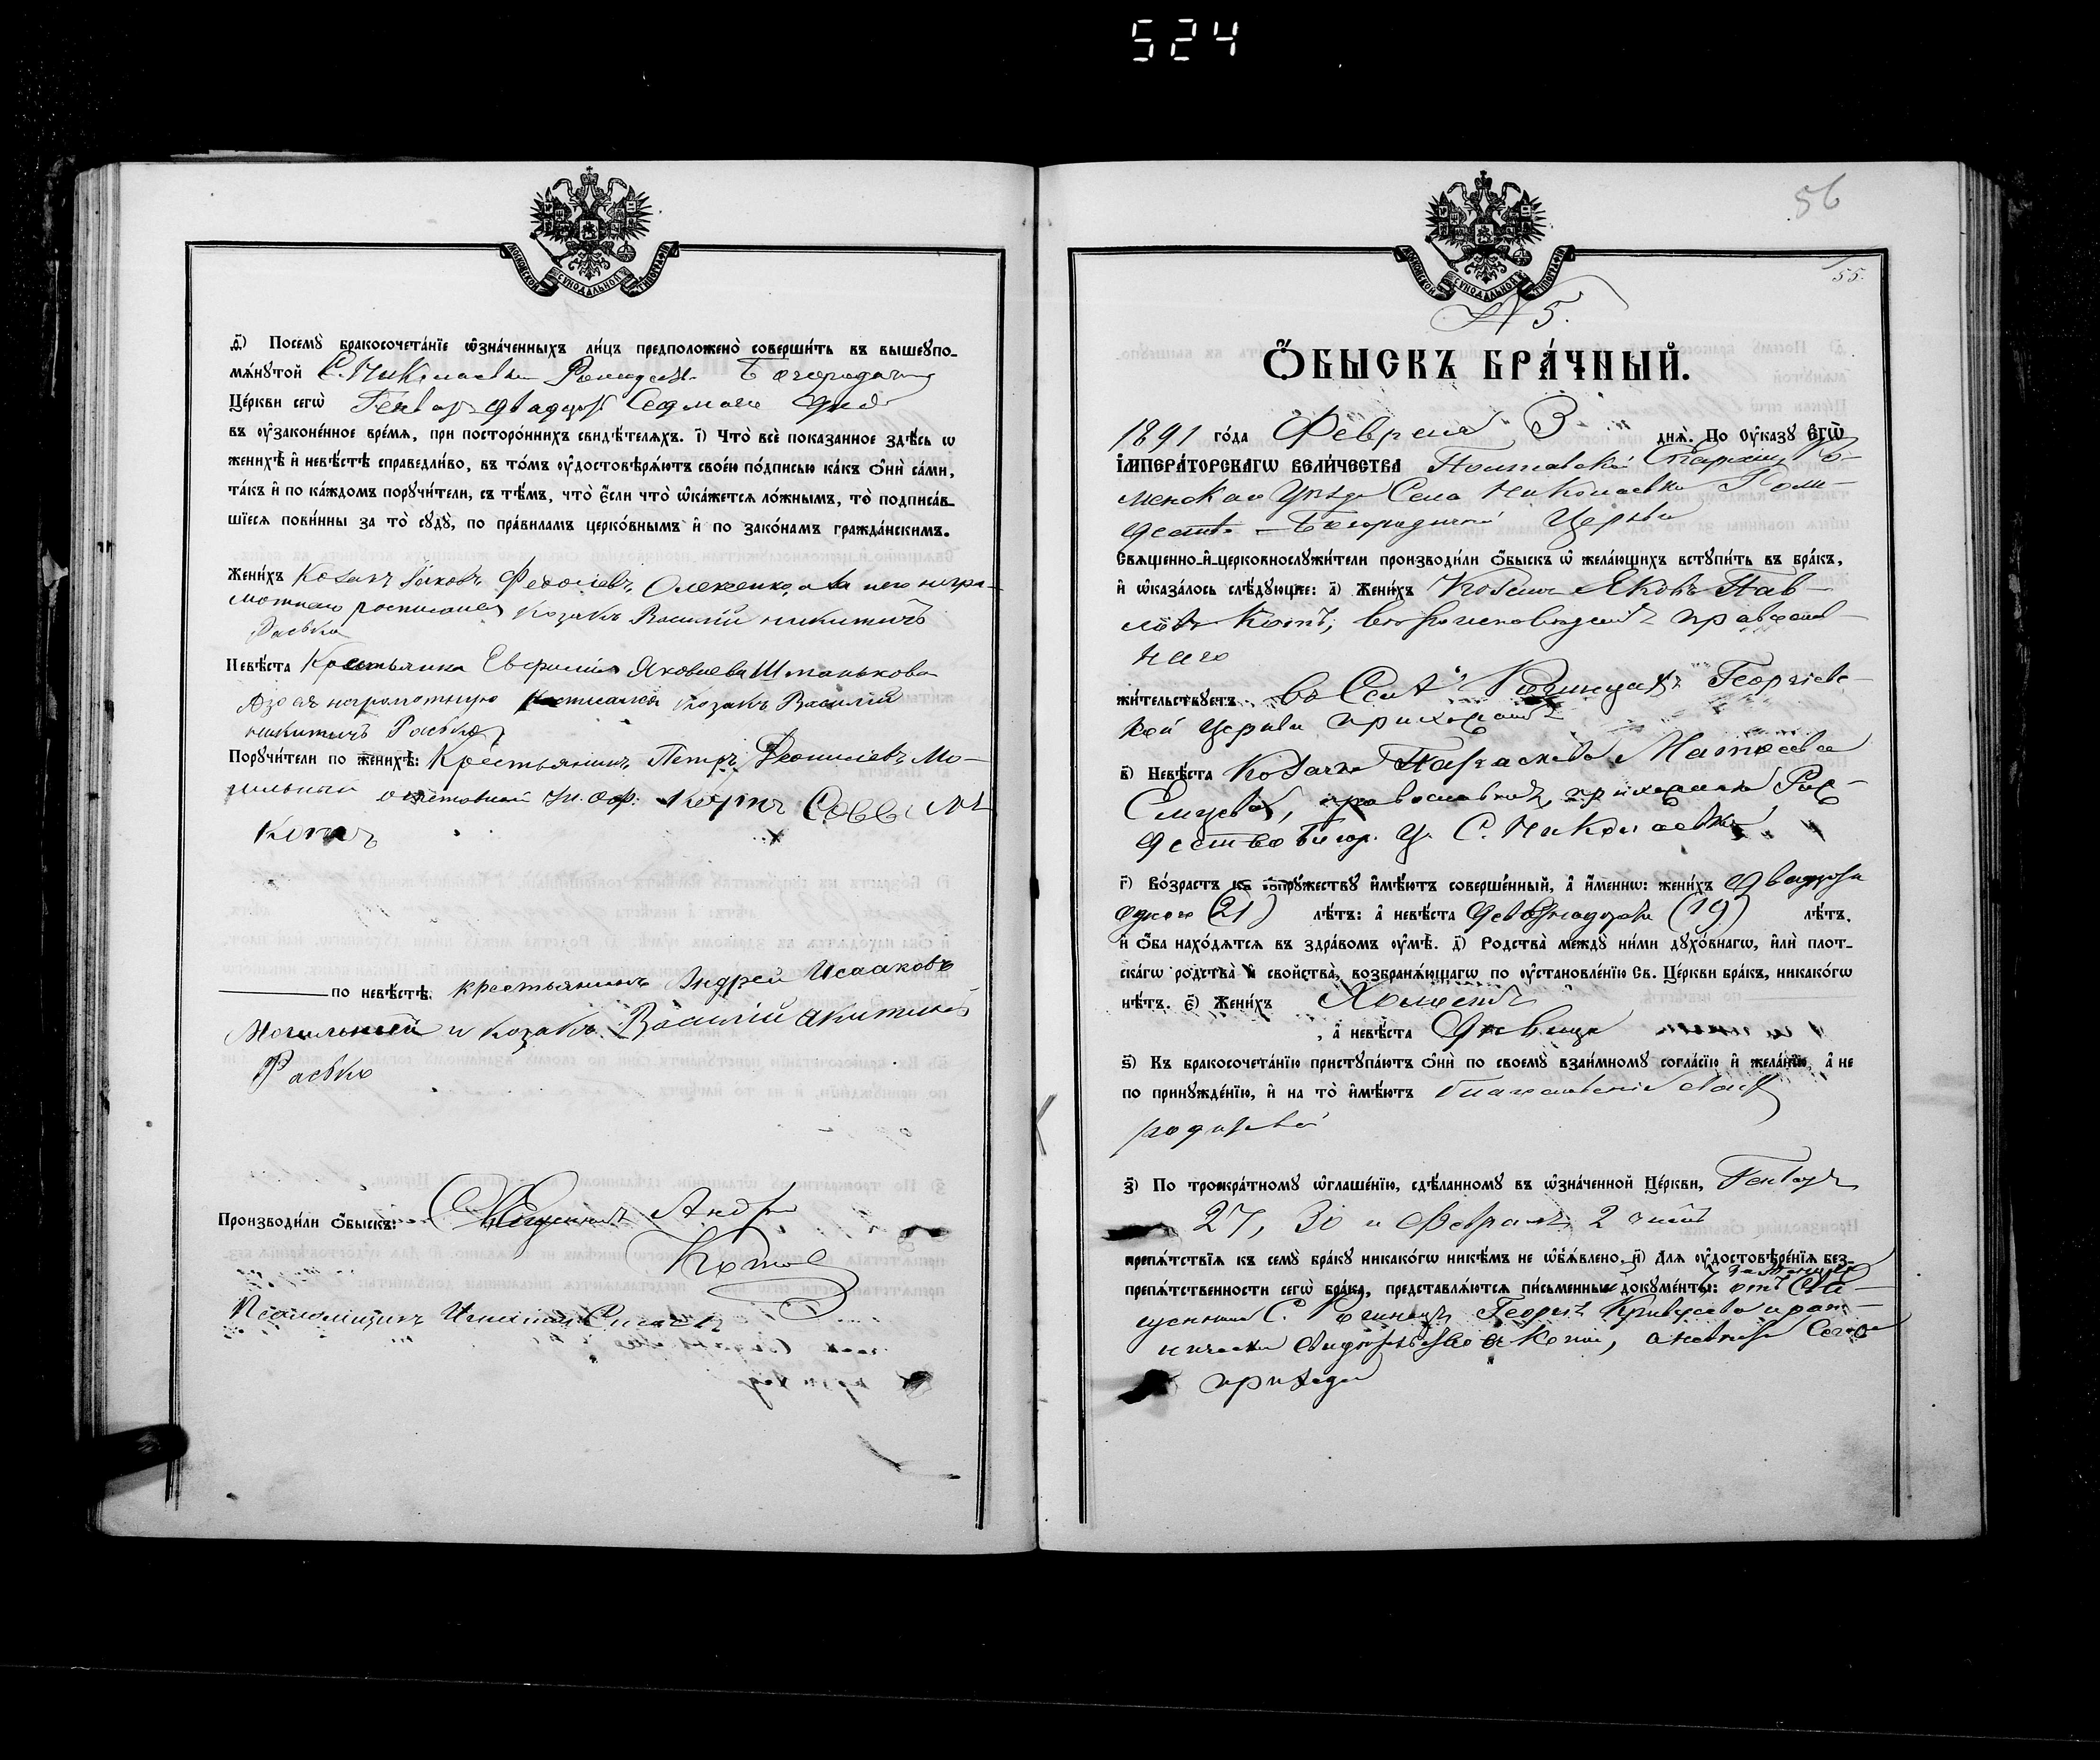 524
МОСКОВСКОЙ СУНОДАЛЬНОЙ ТИПОГРАФІИ
д҃і) Посемꙋ̀ бракосочета́нїе ѡ҆зна́ченныхъ ли́цъ предположено̀ соверши́ть въ вышеꙋпо-
мѧ́нꙋтой С. Николаевки Рождест. Богородичн
Це́ркви сегѡ̀ Генваря двадцать седмаго дня
въ ᲂу҆законе́нное вре́мѧ, при посторо́ннихъ свидѣ́телѧхъ. і҃) Что̀ всѐ показанное здѣ́сь ѡ
женихѣ̀ и҆ невѣ́стѣ справедли́во, въ то́мъ ᲂу҆достовѣрѧ́ютъ свое́ю по́дписью ка́къ ѻ҆нѝ са́ми,
та́къ и҆ по ка́ждомъ порꙋчи́тели, съ тѣ́мъ, что̀ є҆́сли что̀ ѡ҆ка́жетсѧ ло́жнымъ, то̀ подписа́в-
шїесѧ пови́нны за то̀ сꙋдꙋ̀, по пра́виламъ церко́внымъ и҆ по зако́намъ гражда́нскимъ.
Жени́хъ Козакъ Яковъ Олексенко, а за него негра-
мотнаго росписался козакъ Василій Никитичъ
Расько
Невѣ́ста Крестьянка Евфимія Яковлева Шманькова
А за ея неграмотную росписался козакъ Василій
Никитичъ Расько
Порꙋчи́тели по женихѣ̀: Крестьянинъ Петръ Мо-
гильный отставной Ун. Оф. Савва
Котъ
по невѣ́стѣ: крестьянинъ Андрей Исааковъ
Могильный и козакъ Василій Никитинъ
Расько
Производи́ли ѻ҆́быскъ: Священникъ Андрей
Котов
Псаломщикъ
56
55.
МОСКОВСКОЙ СУНОДАЛЬНОЙ ТИПОГРАФІИ
N 5.
Ѻ҆́БЫСКЪ БРА́ЧНЫЙ.
1891 го́да Февраля 3 днѧ̀. По ᲂу҆ка́зꙋ Е҆ГѠ̀
И҆МПЕРА́ТОРСКАГѠ ВЕЛИ́ЧЕСТВА Полтавской Епархіи Ро-
менскаго Уѣзда Села Николаевки Рож-
деств. — Богородичной Церкви
Свѧщенно-и҆-церковнослꙋжи́тели производи́ли ѻ҆́быскъ ѡ҆ жела́ющихъ встꙋпи́ть въ бра́къ,
и҆ ѡ҆каза́лось слѣ́дꙋющее: а҃) Жени́хъ Козакъ Яковъ Пав-
ловъ Котъ, вѣроисповѣданія православ-
наго
жи́тельствꙋетъ въ Селѣ Рогинцахъ Георгіевс-
кой церкви прихожанинъ
в҃) Невѣ́ста Козачка Параскева Матвеева
православная, прихожанка Рож-
дество Богор. ц. С. Николаевки
г҃) Во́зрастъ къ сопрꙋ́жествꙋ и҆мѣ́ютъ соверше́нный, а҆ и҆́меннѡ: жени́хъ двадцати
одного (21) лѣ́тъ: а҆ невѣ́ста девятнадцати (19) лѣ́тъ.
и҆ ѻ҆́ба нахо́дѧтсѧ въ здра́вомъ ᲂу҆мѣ̀. д҃) Родства̀ междꙋ̀ ни́ми дꙋхо́внагѡ, и҆лѝ плот-
ска́гѡ родства̀ и҆ сво́йства, возбранѧ́ющагѡ по ᲂу҆становле́нїю Св. Це́ркви бра́къ, никако́гѡ
нѣ́тъ. є҃) Жени́хъ Холостъ
, а҆ невѣ́ста Дѣвица
ѕ҃) Къ бракосочета́нїю пристꙋпа́ютъ ѻ҆нѝ по своемꙋ̀ взаи́мномꙋ согла́сїю и҆ жела́нїю, а҆ не
по принꙋжде́нїю, и҆ на то̀ и҆мѣ́ютъ благословеніе своихъ
родителей
з҃) По троекра́тномꙋ ѡ҆глаше́нїю, сдѣ́ланномꙋ въ ѡ҆зна́ченной Це́ркви, Генваря
27, 30 и Февраля 2 числъ
препѧ́тствїѧ къ семꙋ̀ бра́кꙋ никако́гѡ никѣ́мъ не ѡ҆б̾ѧ́влено. и҃) Длѧ ᲂу҆достовѣре́нїѧ без-
препѧ́тственности сегѡ̀ бра́ка, представлѧ́ютсѧ пи́сьменные докꙋме́нты: отъ Свя-
щенника С. Рогинецъ Георгія
свидѣтельство о Котѣ, а невѣста сего
прихода